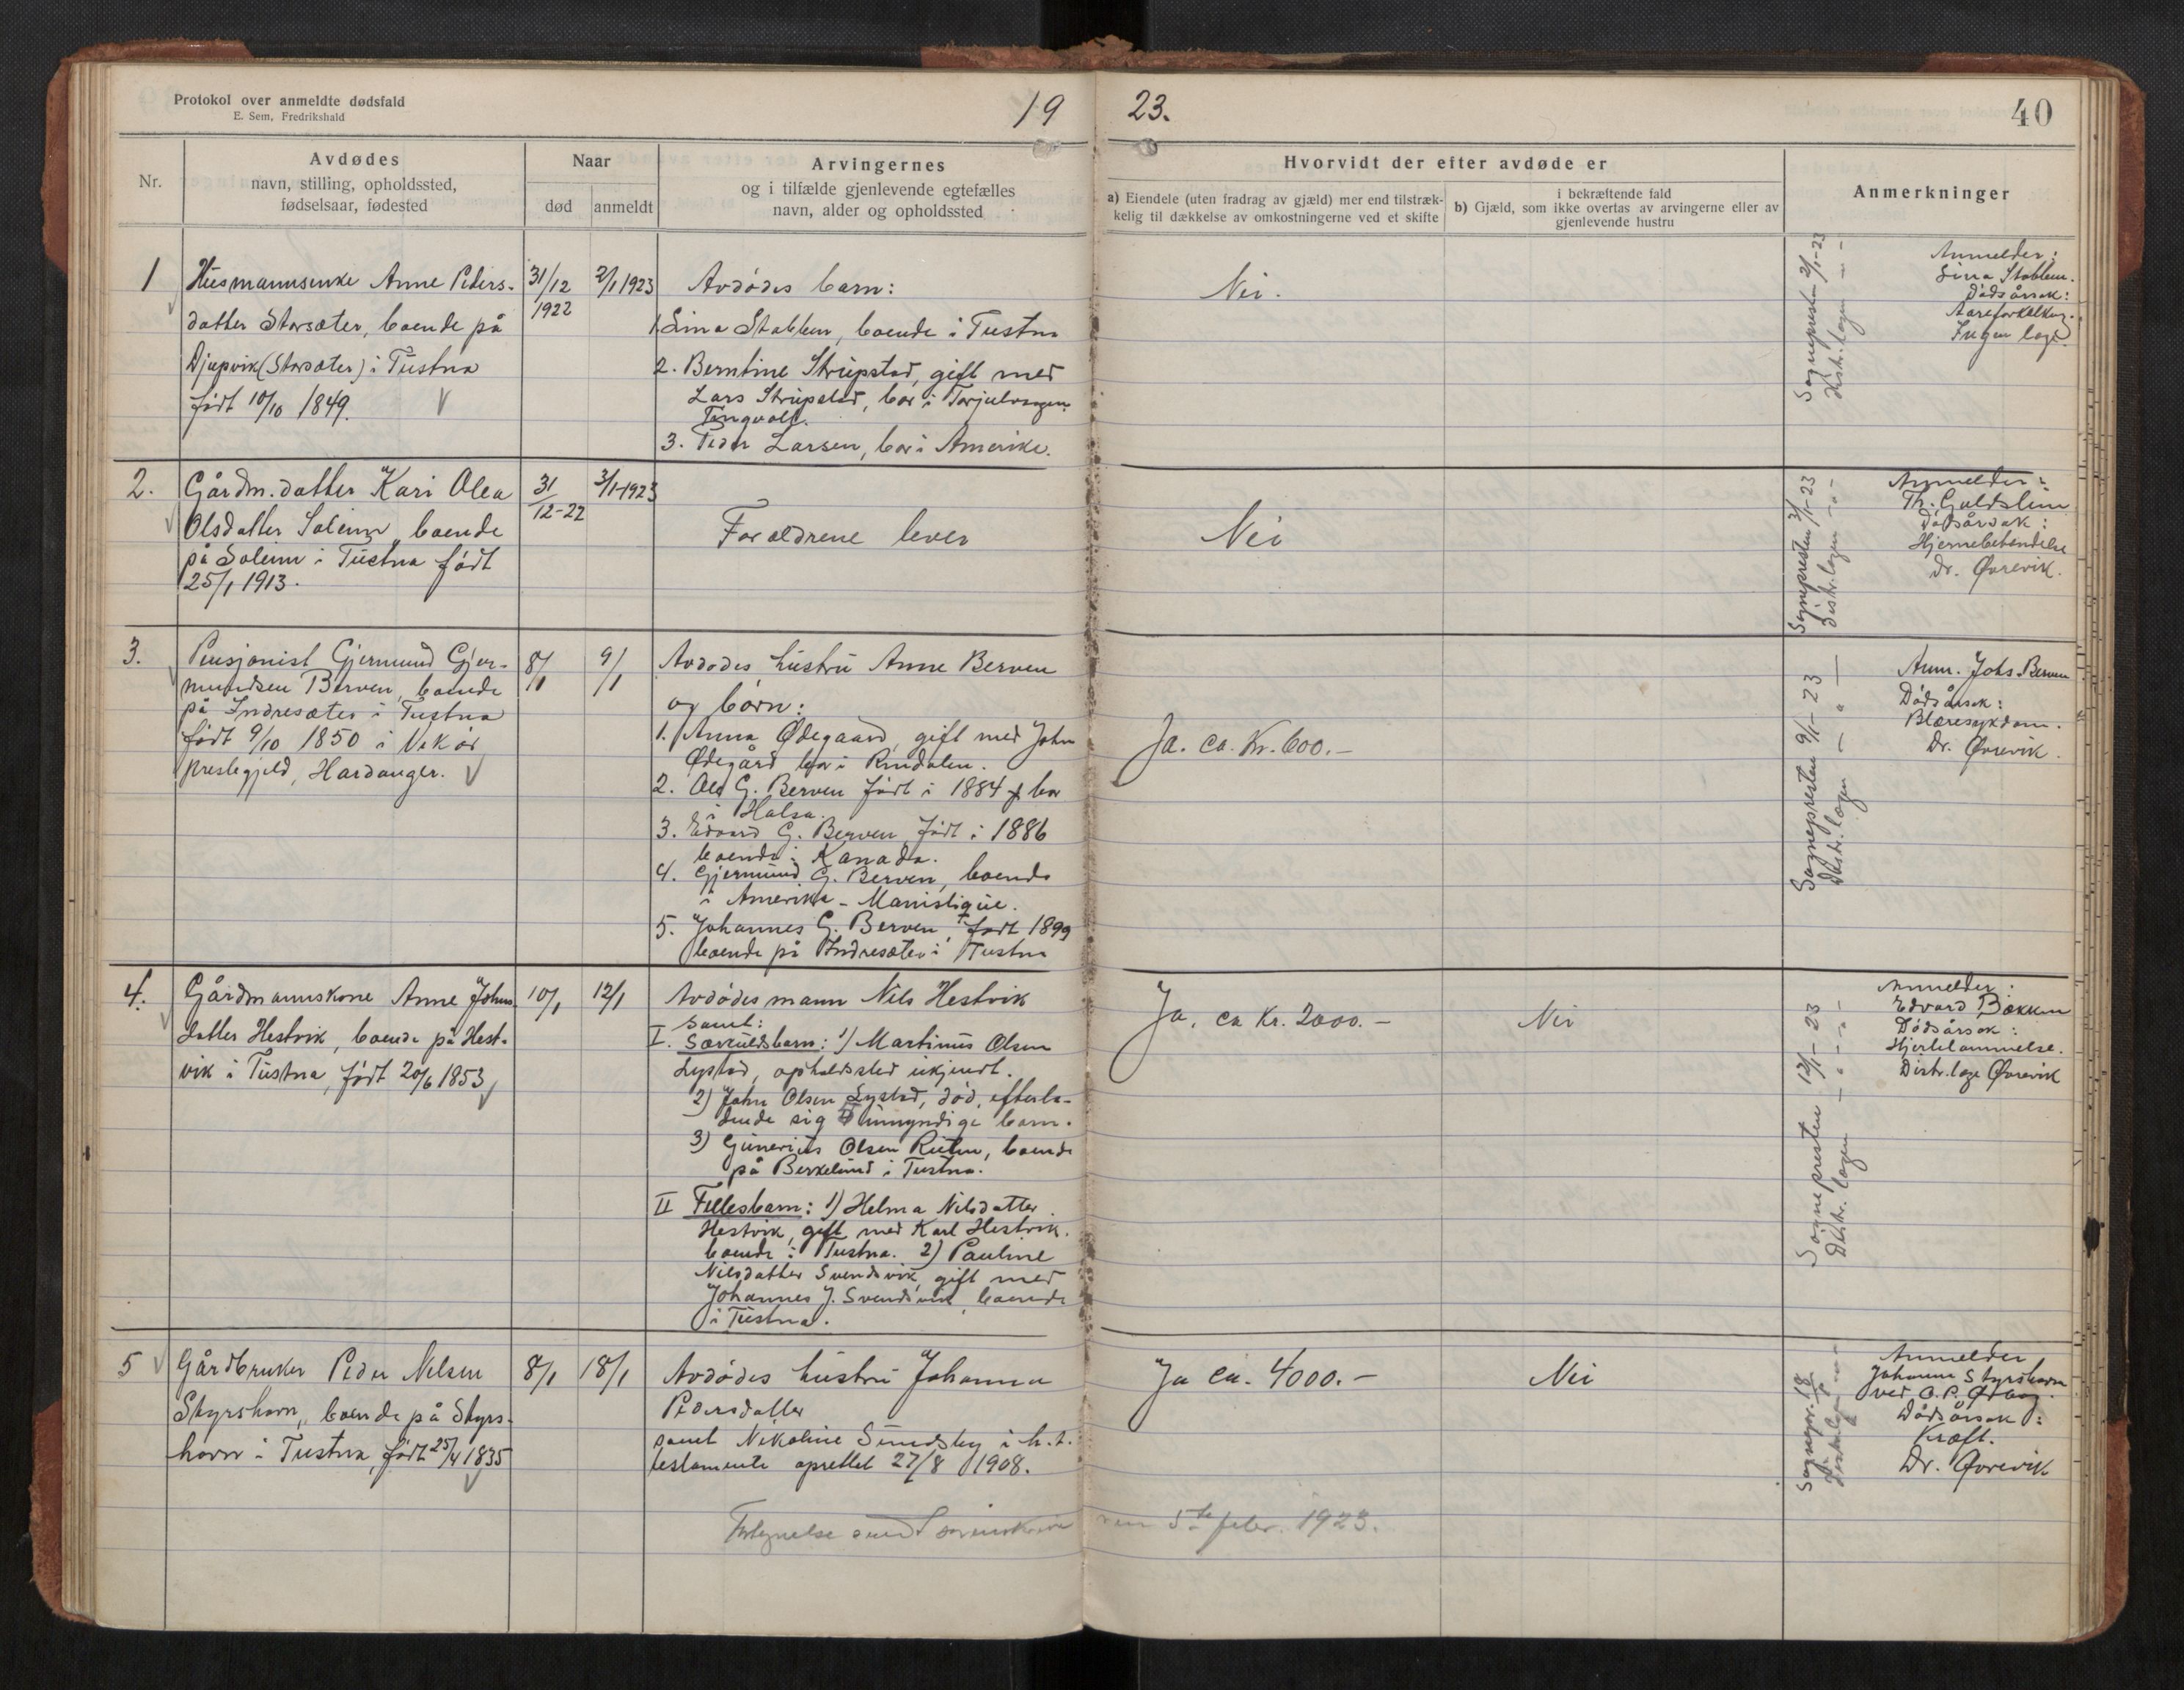 Protokol over anmeldte dødsfald
E. Sem, Fredrikshald
19
23.
40
Nr.
Avdødes
navn, stilling, opholdssted,
fødselsaar, fødested
Naar
død
anmeldt
Arvingernes
og i tilfælde gjenlevende egtefælles
navn, alder og opholdssted
Hvorvidt der efter avdøde er
a) Eiendele (uten fradrag av gjæld) mer end tilstræk-
kelig til dækkelse av omkostningerne ved et skifte
i bekræftende fald
b) Gjæld, som ikke overtas av arvingerne eller av
gjenlevende hustru
Anmerkninger
1
Husmannsenke Anne Peders-
datter Storsæter, boende på
Djupvik (Storsæter) i Tustna
født 10/10 1849.
31/12
1922
2/1 1923
Avdødes barn:
1. Lina Stablen, boende i Tustna
2. Berntine Strupstad, gift med
Lars Strupstad, bor i Torjulvaagen
Tingvoll.
3. Peder Larsen, bor i Amerika.
Nei.
Sognepresten 2/1-23
Distr.lægen — " —
Anmelder:
Lina Stablen.
Dødsårsak:
Aareforkalkng.
Ingen læge.
2.
Gårdm.datter Kari Olea
Olsdatter Soleim, boende
på Soleim i Tustna født
25/1 1913.
31
12-22
3/1-1923
Foreldrene lever
Nei
Sognepresten 3/1-23
Distr.lægen — " —
Anmelder:
Th. Guldstein
Dødsårsak:
Hjernebetendelse
Dr. Øvrevik.
3.
Pensjonist Gjermund Gjer-
mundsen Berven, boende
på Indresæter i Tustna
født 9/10 1850 i Vikør
prestegjeld, Hardanger.
8/1
9/1
Avdødes hustru Anne Berven
og børn:
1. Anna Ødegaard, gift med John
Ødegård bor i Rindalen.
2. Ole G. Berven født i 1884 bor
i Halsa.
3. Edvard G. Berven født i 1886
boende i Kanada.
4. Gjermund G. Berven, boende
i Amerika - Manistique.
5. Johannes G. Berven, født 1899
boende på Indresæter i Tustna
Ja. ca. Kr. 600.—
Sognepresten 9/1-23
Distr.lægen — " —
Anm. Johs. Berven
Dødsårsak:
Blæresykdom.
Dr. Øvrevik.
4.
Gårdmannskone Anne Johns-
datter Hestvik, boende på Hest-
vik i Tustna, født 20/6 1853
10/1
12/1
Avdødes mann Nils Hestvik
samt:
I. Særkuldsbarn: 1) Martinus Olsen
Lystad, opholdssted ukjendt.
2) John Olsen Lystad, død, efterla-
dende sig umyndige barn.
3) Gunerius Olsen Ruten, boende
på Berkelund i Tustna.
II Fellesbarn: 1) Helma Nilsdatter
Hestvik, gift med Karl Hestvik.
boende i Tustna. 2) Pauline
Nilsdatter Svendsvik, gift med
Johannes J. Svendsvik, boende
i Tustna.
Ja, ca Kr. 2000.—
Nei
Sognepresten 12/1-23
Distr. lægen — " —
Anmelder:
Edvard Bækken
Dødsårsak:
Hjertelammelse.
Distr.læge Øvrevik
5
Gårdbruker Peder Nilsen
Skyrshavn, boende på Skyrs-
havn i Tustna, født 25/4 1835
8/1
18/1
Avdødes hustru Johanna
Pedersdatter
samt Nikoline Sundsby i h.t.
testamente oprettet 27/8 1908.
Ja ca. 4000.—
Nei
Sognepr. 18/1
Distr.læg. — " —
Anmelder
Johanna Skyrshavn
ved O. P.
Dødsårsak:
Kræft.
Dr. Øvrevik
Fortegnelse sendt sorenskriveren 5te febr. 1923.